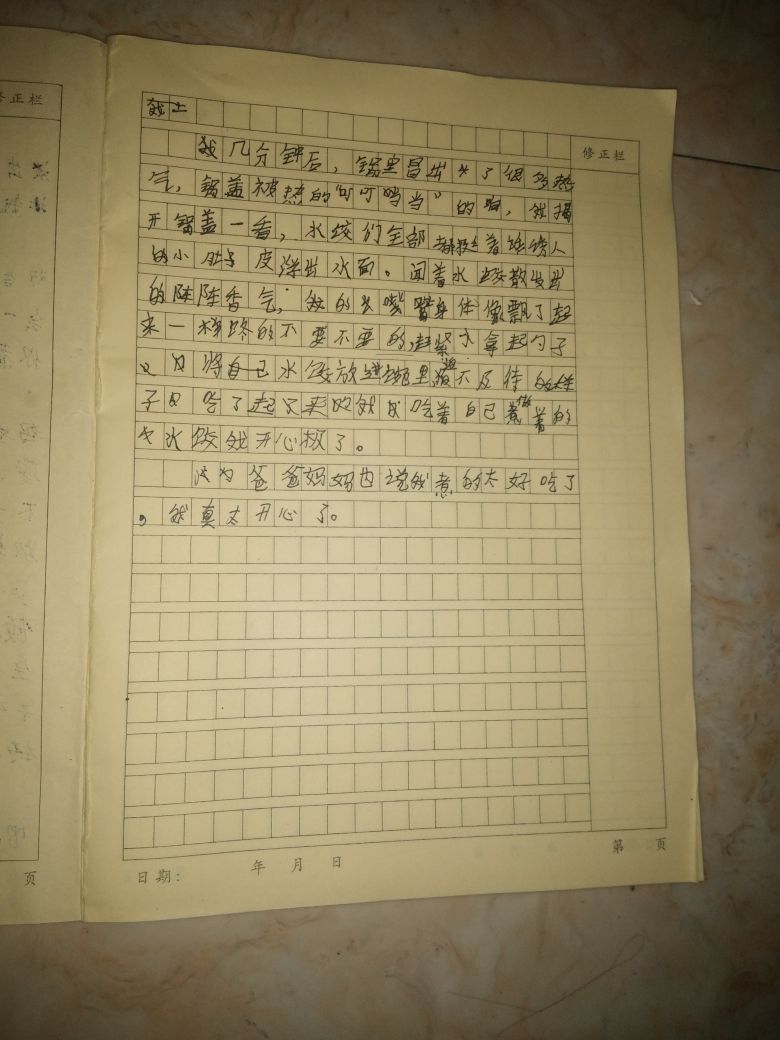 修正栏
修正栏
我土
我几分钟后，锅里冒出了很多热
气，锅盖被热的“叮叮当当”的响，我揭
开锅盖一看，水饺们全部都挺着
的小肚子皮浮出水面。闻着水饺散发出
的阵阵香气，我的身体像飘了起
来一样的不要不要的，赶紧拿起勺子
只只将自己水饺放进碗里迫不及待的
子吃了起来吃着自己煮着的
水饺我开心极了。
爸爸妈妈也说我煮的太好吃了
，我真太开心了。
日期： 年 月 日
第 页
页